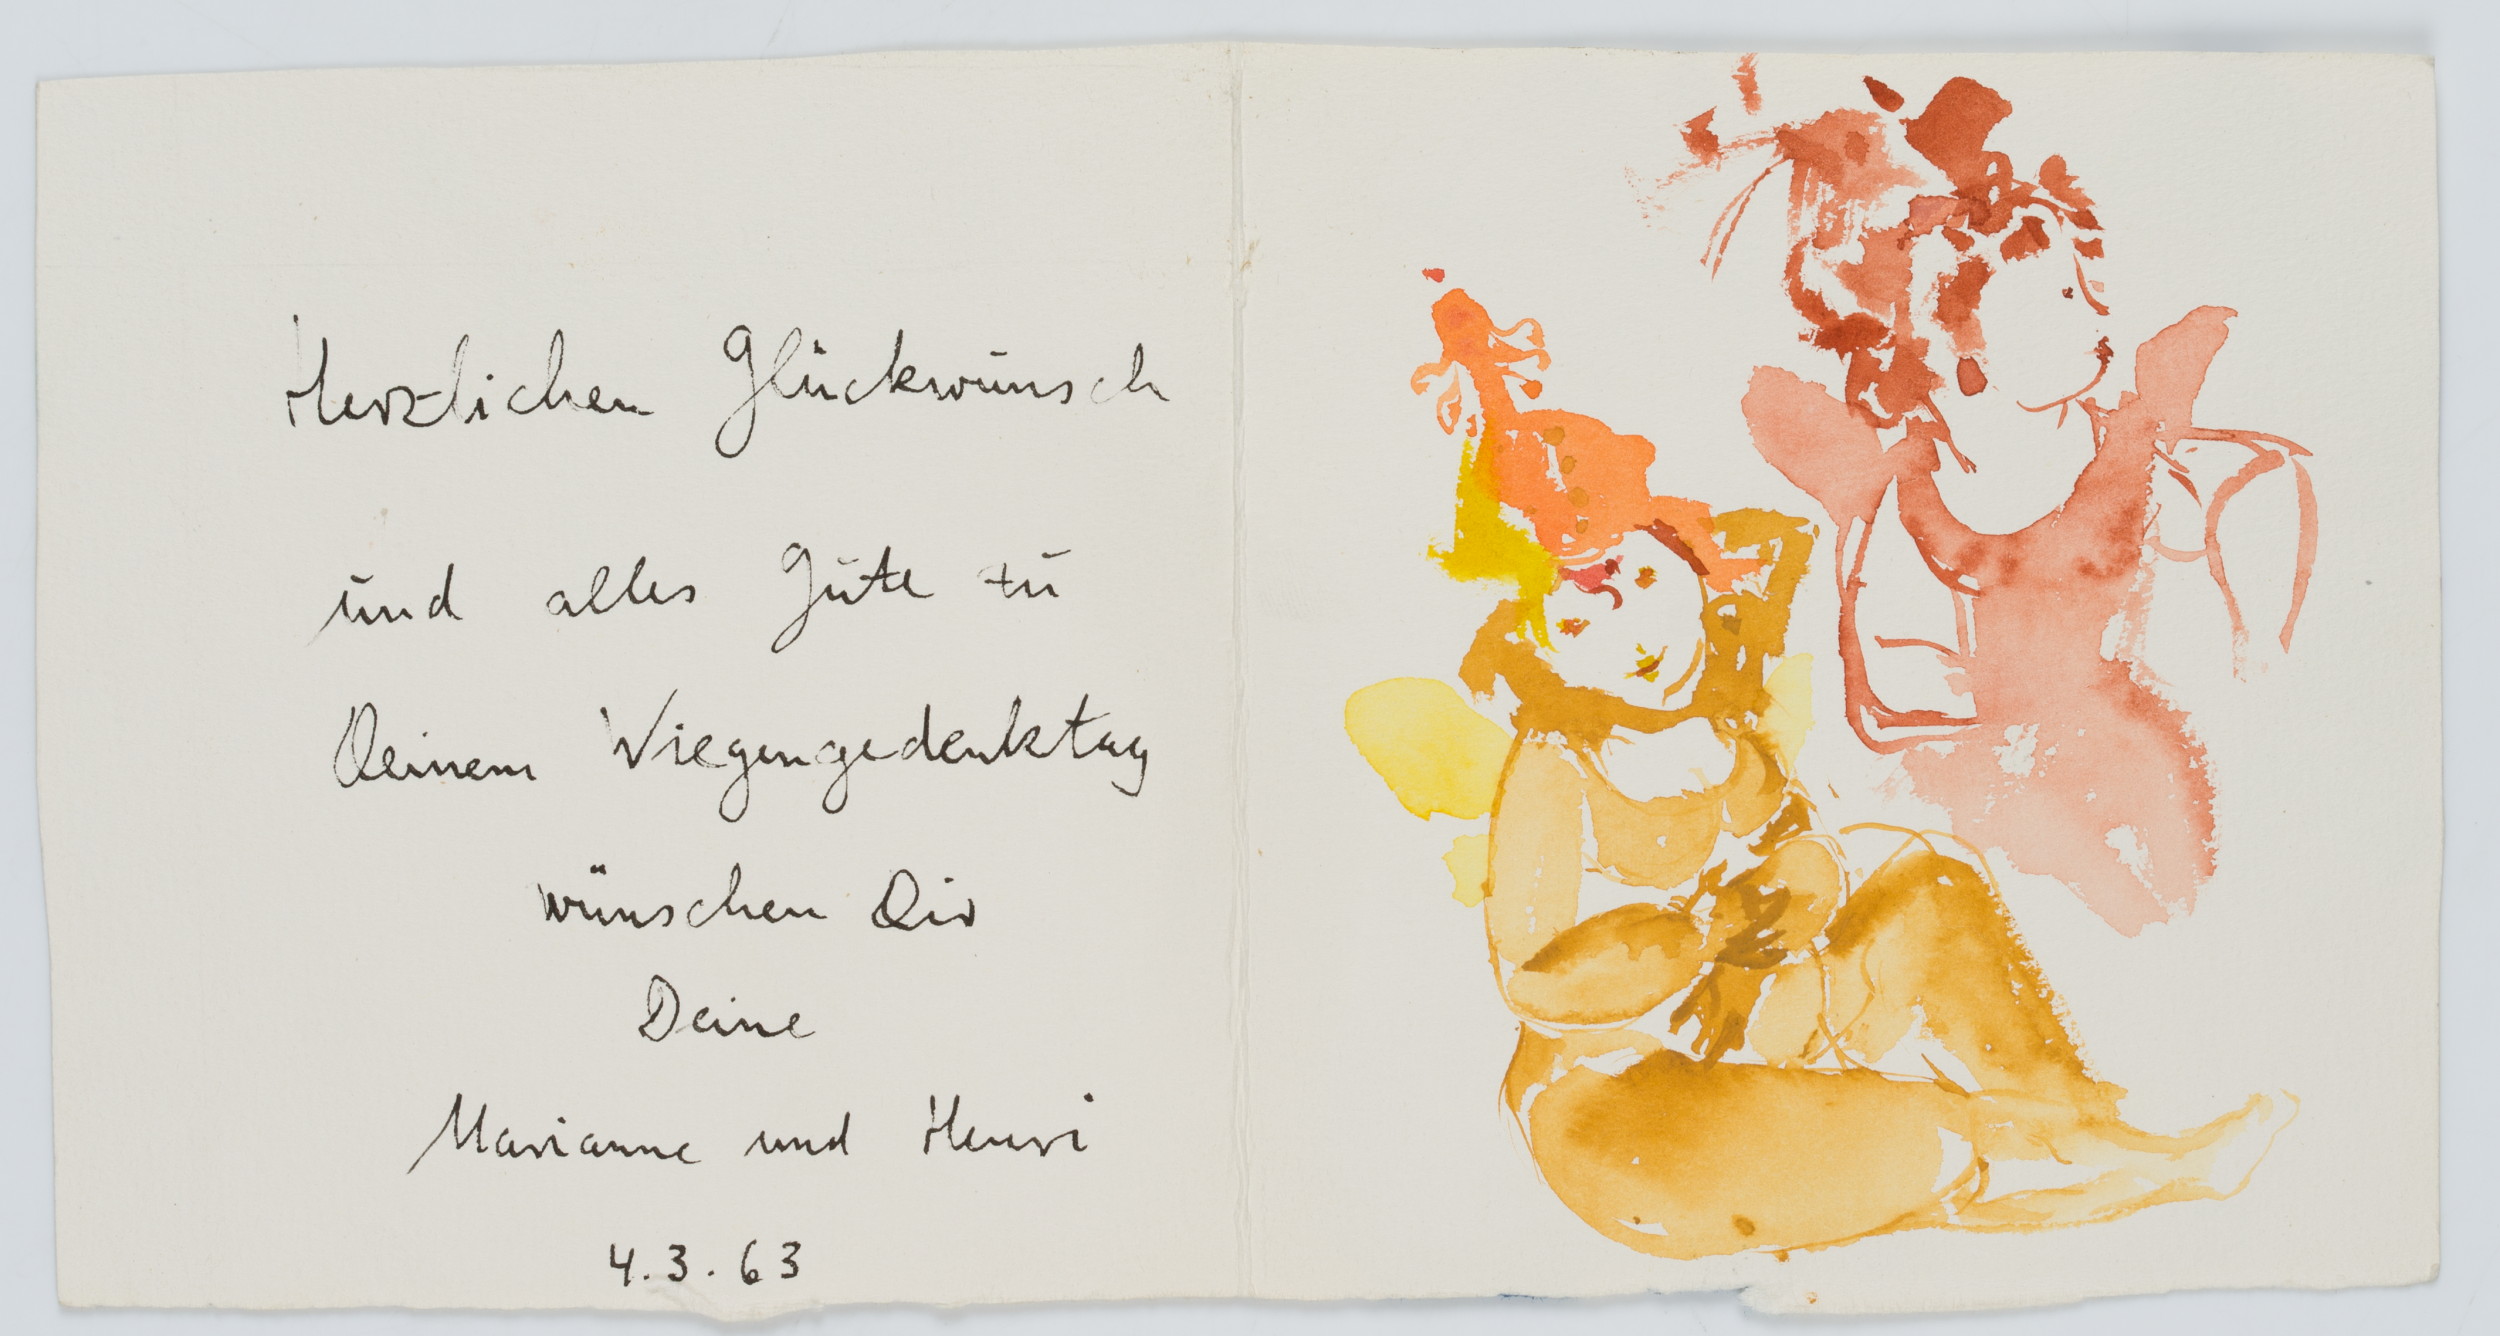 Herzlichen Glückwunsch
und alles Gute zu
Deinem Wiegengedenktag
wünschen Dir
Deine
Marianne und Henri
4.3.63